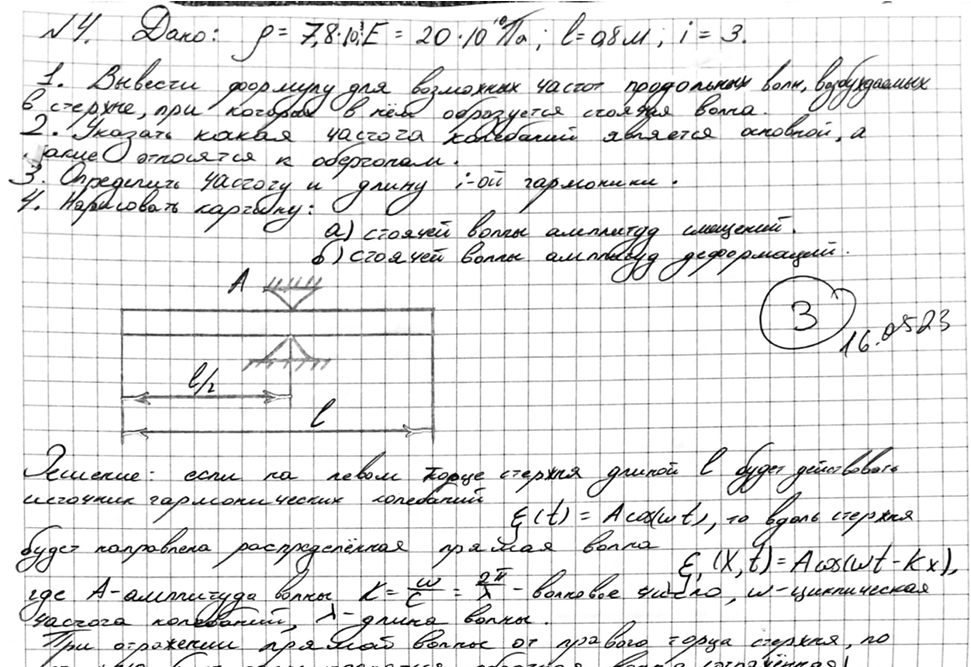 №4. Дано: ρ = 7,8·10³; E = 20·10¹⁰ Па; l = 0,8 м; i = 3.
1. Вывести формулу для возможных частот продольных волн, возбуждаемых
в стержне, при которых в нём образуется стоячая волна.
2. Указать какая частота колебаний является основной, а
какие относятся к обертонам.
3. Определить частоту и длину i-ой гармоники.
4. Нарисовать картину:
а) стоячей волны амплитуд смещений.
б) стоячей волны амплитуд деформаций.
A
3
16.05.23
l/2
l
Решение: если на левом торце стержня длиной l будет действовать
источник гармонических колебаний
ξ(t) = A cos(ωt), то вдоль стержня
будет направлена распределённая прямая волна
ξ₁(x,t) = A cos(ωt - kx),
где A - амплитуда волны K = ω/c = 2π/λ - волновое число, ω - циклическая
частота колебаний, λ - длина волны.
При отражении прямой волны от правого торца стержня, по
обратная волна (отражённая)